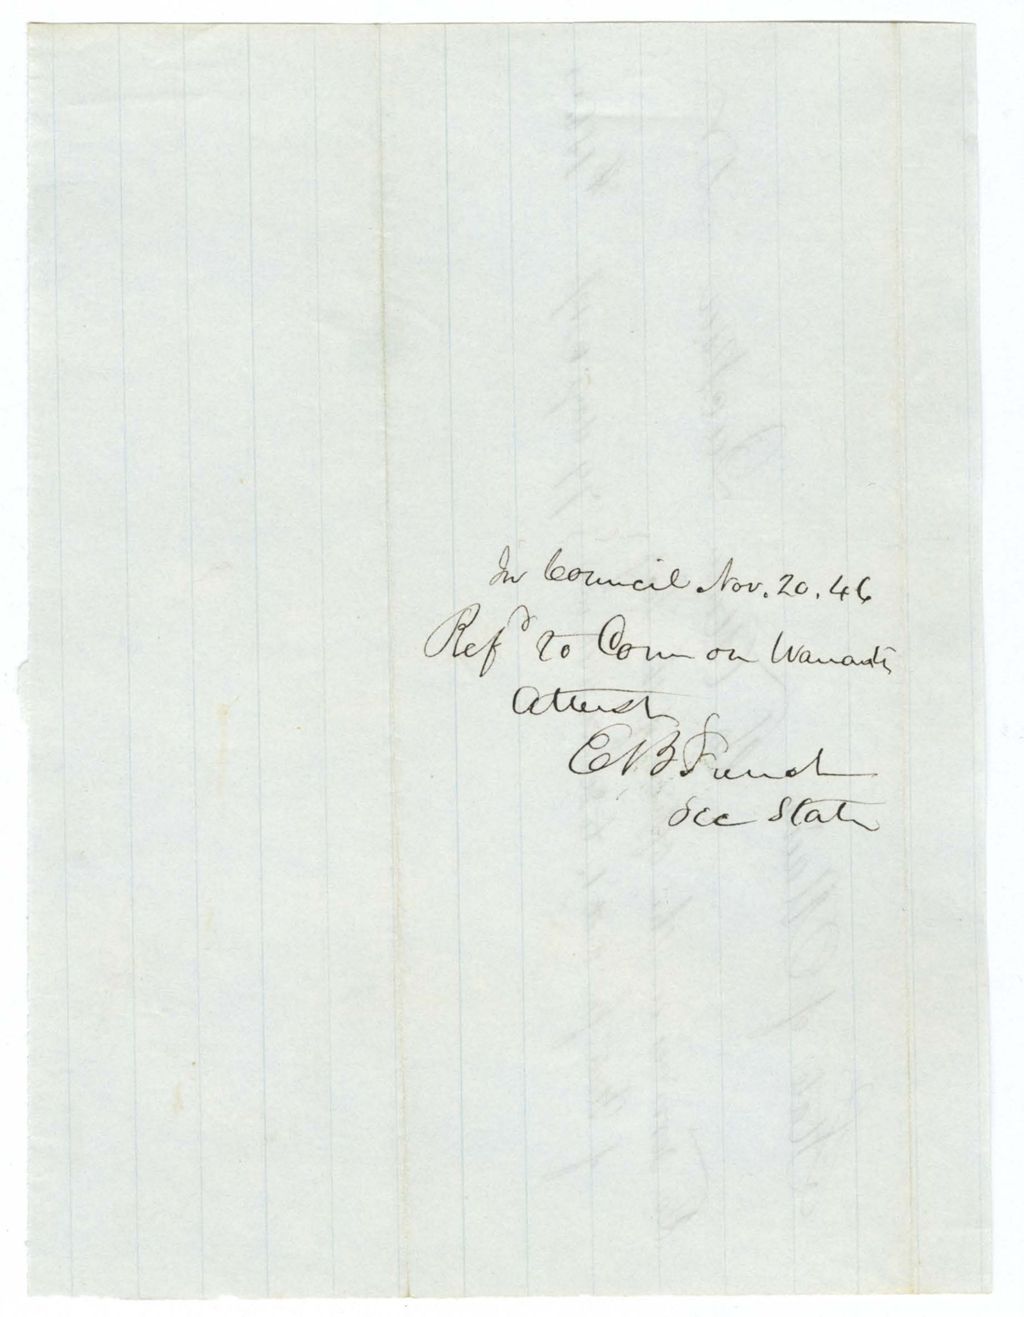 In Council Nov. 20. 46
Refd to Com on Warrants
Attest
E B French
Sec State